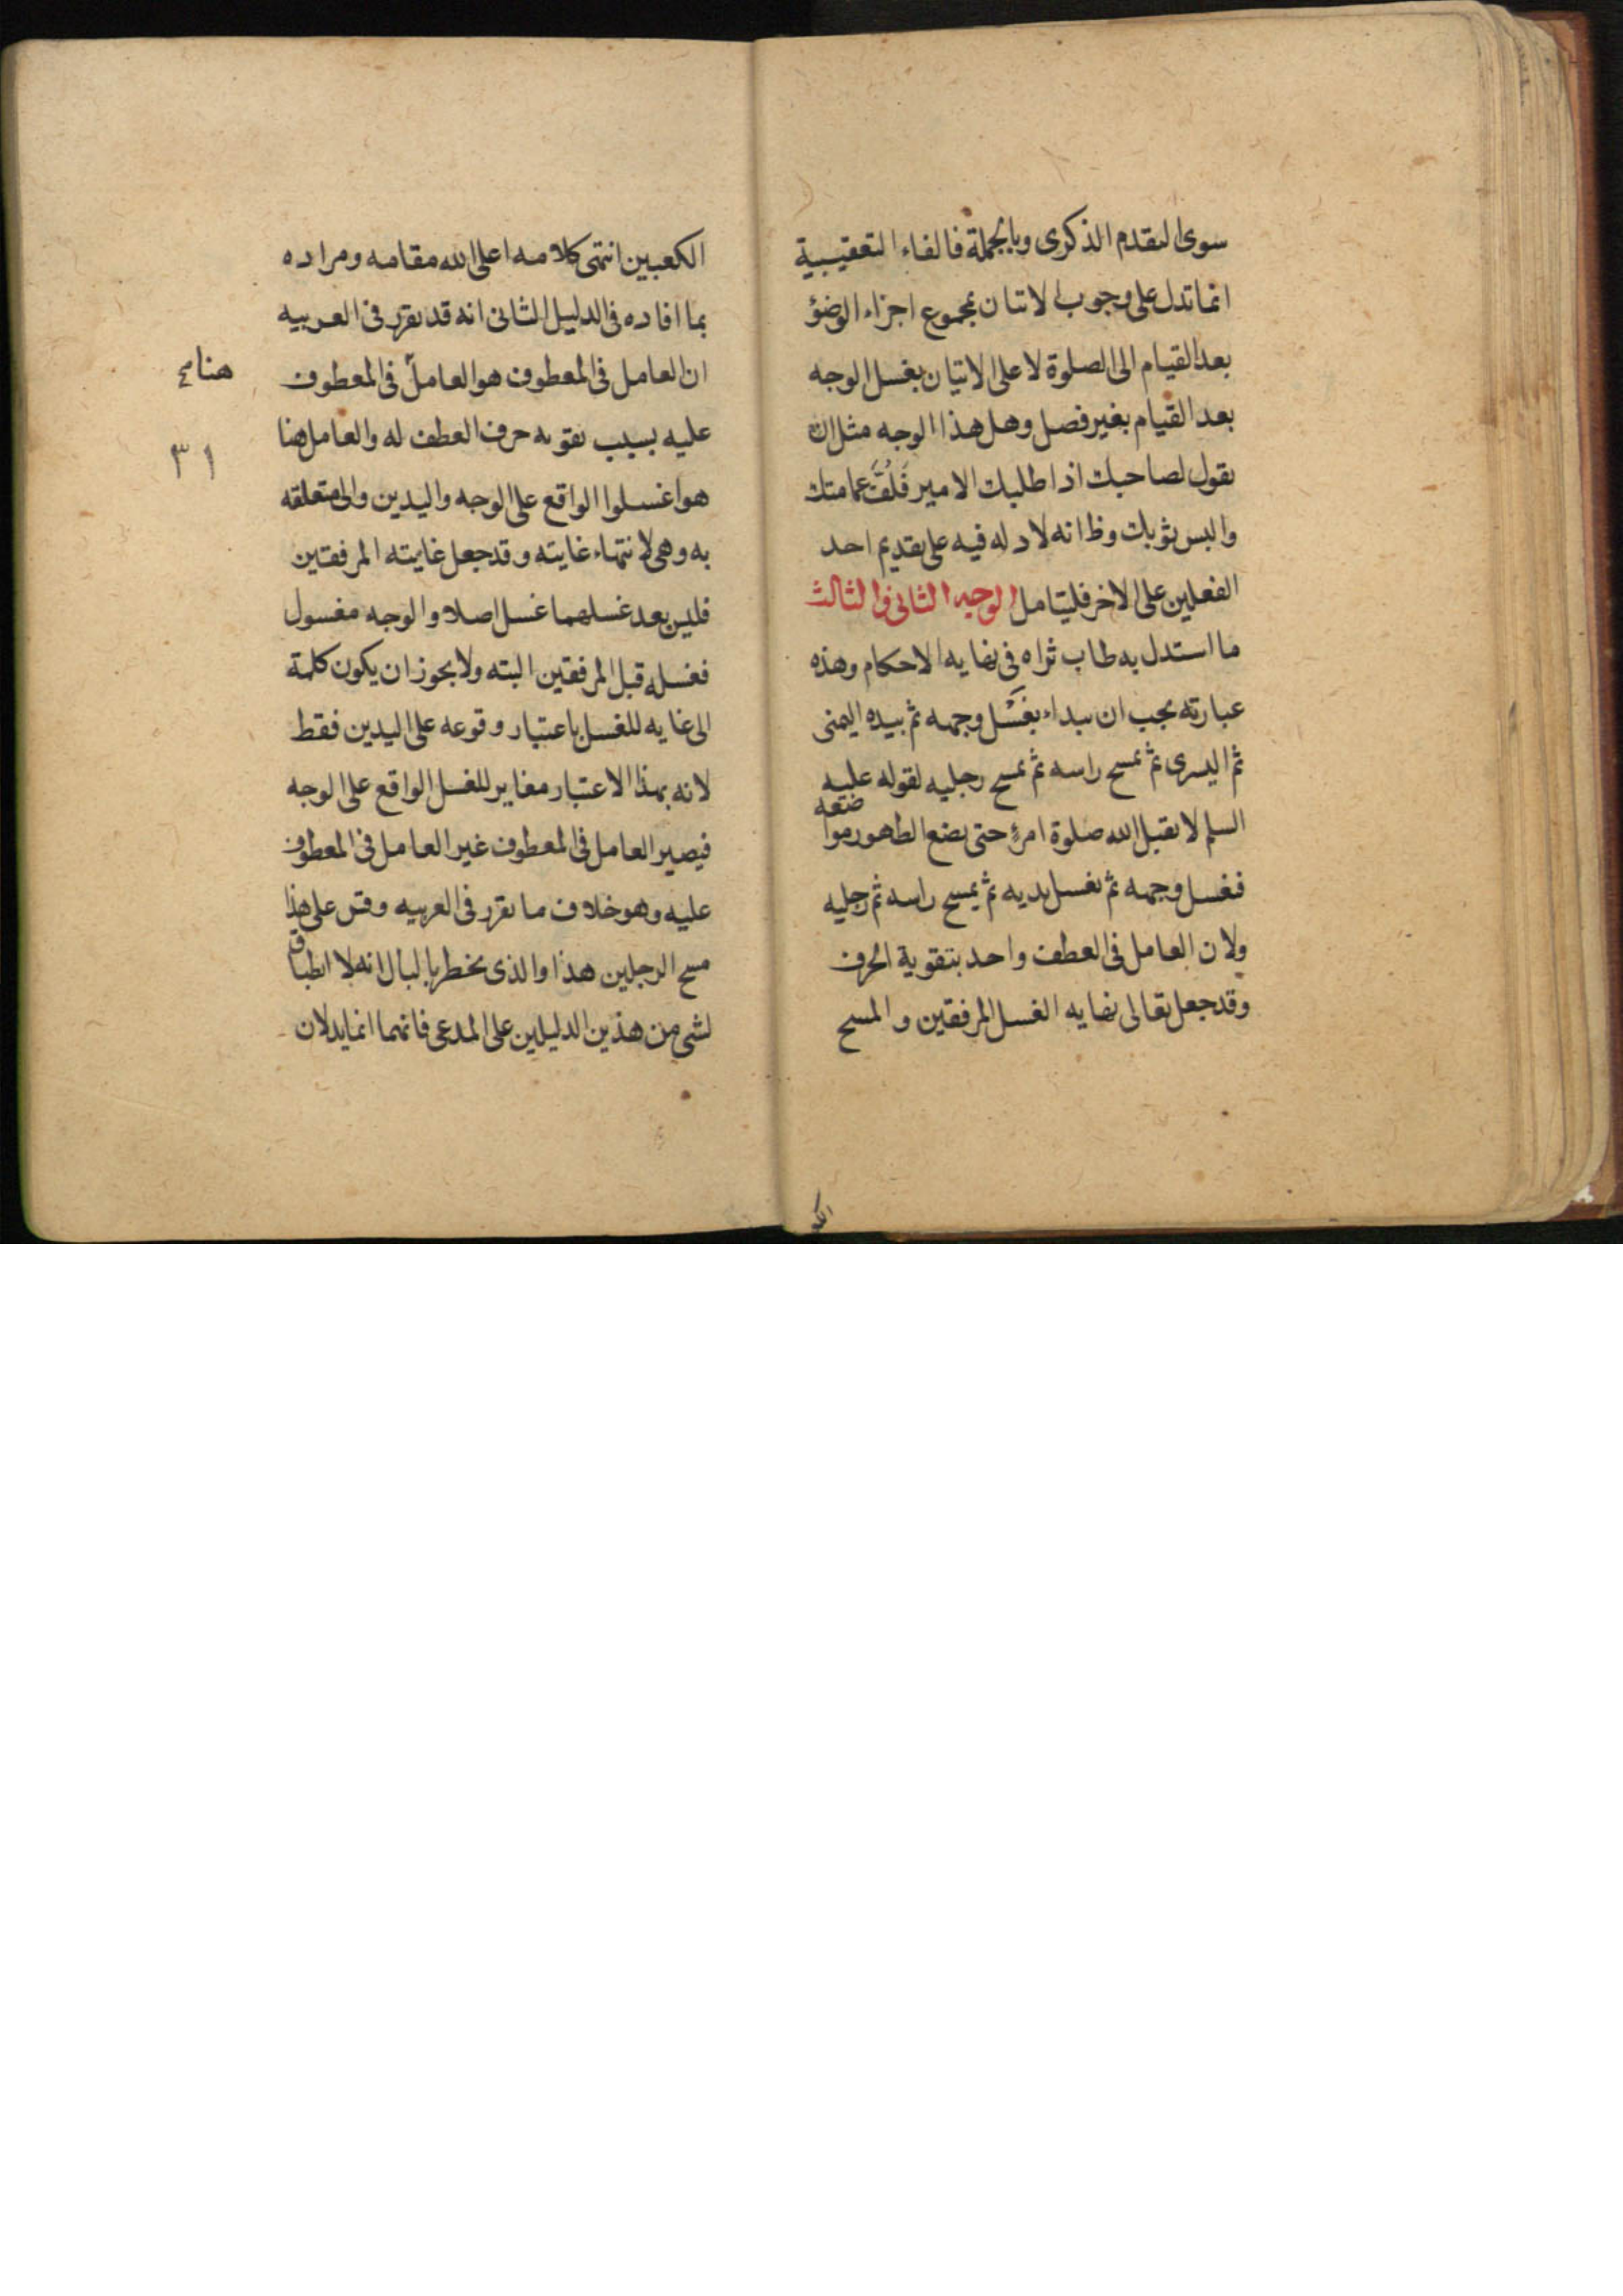 سوى التقدم الذكرى وبالجملة فالفاء التعقيبية
انما تدل على وجوب الاتيان بمجموع اجزاء الوضؤ
بعد القيام الى الصلوة لا على الاتيان بغسل الوجه
بعد القيام بغير فصل وهل هذا الوجه مثل ان
تقول لصاحبك اذا طلبك الامير فلف عمامتك
والبس ثوبك وظ انه لا دلالة فيه على تقديم احد
الفعلين على الاخر فليتامل الوجه الثانى والثالث
ما استدل به طاب ثراه فى نهايه الاحكام وهذه
عبارته يجب ان يبداء بغسل وجهه ثم بيده اليمنى
ثم اليسرى ثم يمسح راسه ثم يمسح رجليه لقوله عليه
السلم لا يقبل الله صلوة امرئ حتى يضع الطهور موا
ضعه
فغسل وجهه ثم يغسل يديه ثم يمسح راسه ثم رجليه
ولان العامل فى العطف واحد بتقوية الحرف
وقد جعل تعالى نهايه الغسل المرفقين و المسح
الك
الكعبين انتهى كلامه اعلى الله مقامه ومراده
بما افاده فى الدليل الثانى انه قد تقرر فى العربيه
ان العامل فى المعطوف هو العامل فى المعطوف
عليه بسبب تقويه حرف العطف له والعامل هنا
هو اغسلوا الواقع على الوجه واليدين والى متعلقه
به وهى لانتهاء غايته وقد جعل غايته المرفقين
فليس بعد غسلهما غسل اصلا والوجه مغسول
فغسله قبل المرفقين البته ولا يجوز ان يكون كلمة
الى غايه للغسل باعتبار وقوعه على اليدين فقط
لانه بهذا الاعتبار مغاير للغسل الواقع على الوجه
فيصير العامل فى المعطوف غير العامل فى المعطوف
عليه وهو خلاف ما تقرر فى العربيه وقس على هذا
مسح الرجلين هذا والذى يخطر بالبال انه لا انطباق
لشى من هذين الدليلين على المدعى فانهما انما يدلان
٣١